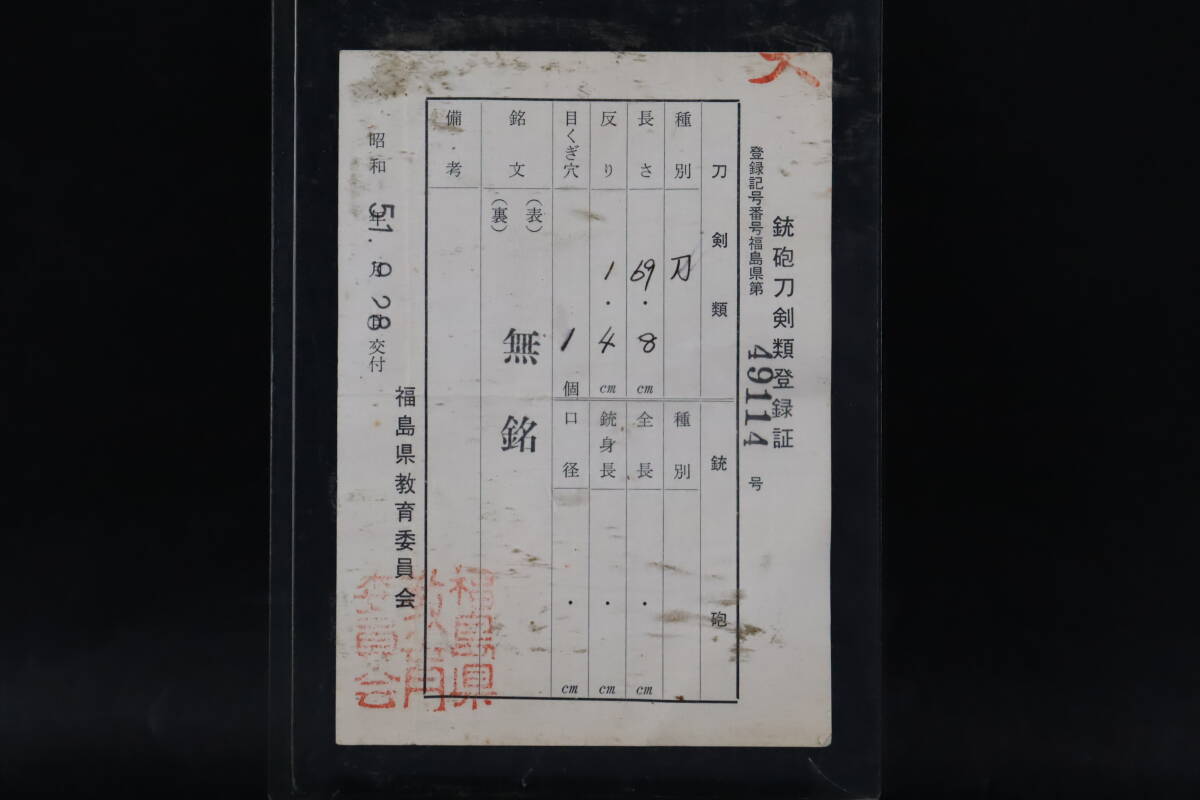 銃砲刀剣類登録証
登録記号番号福島県第 49114 号
刀剣類
種別 刀
長さ 69.8 cm
反り 1.4 cm
目くぎ穴 1 個
銘文 (表) (裏) 無銘
備考
銃砲
種別
全長 . cm
銃身長 . cm
口径 . cm
昭和 51年 9月 28日交付
福島県教育委員会
福島県
教育
委員会